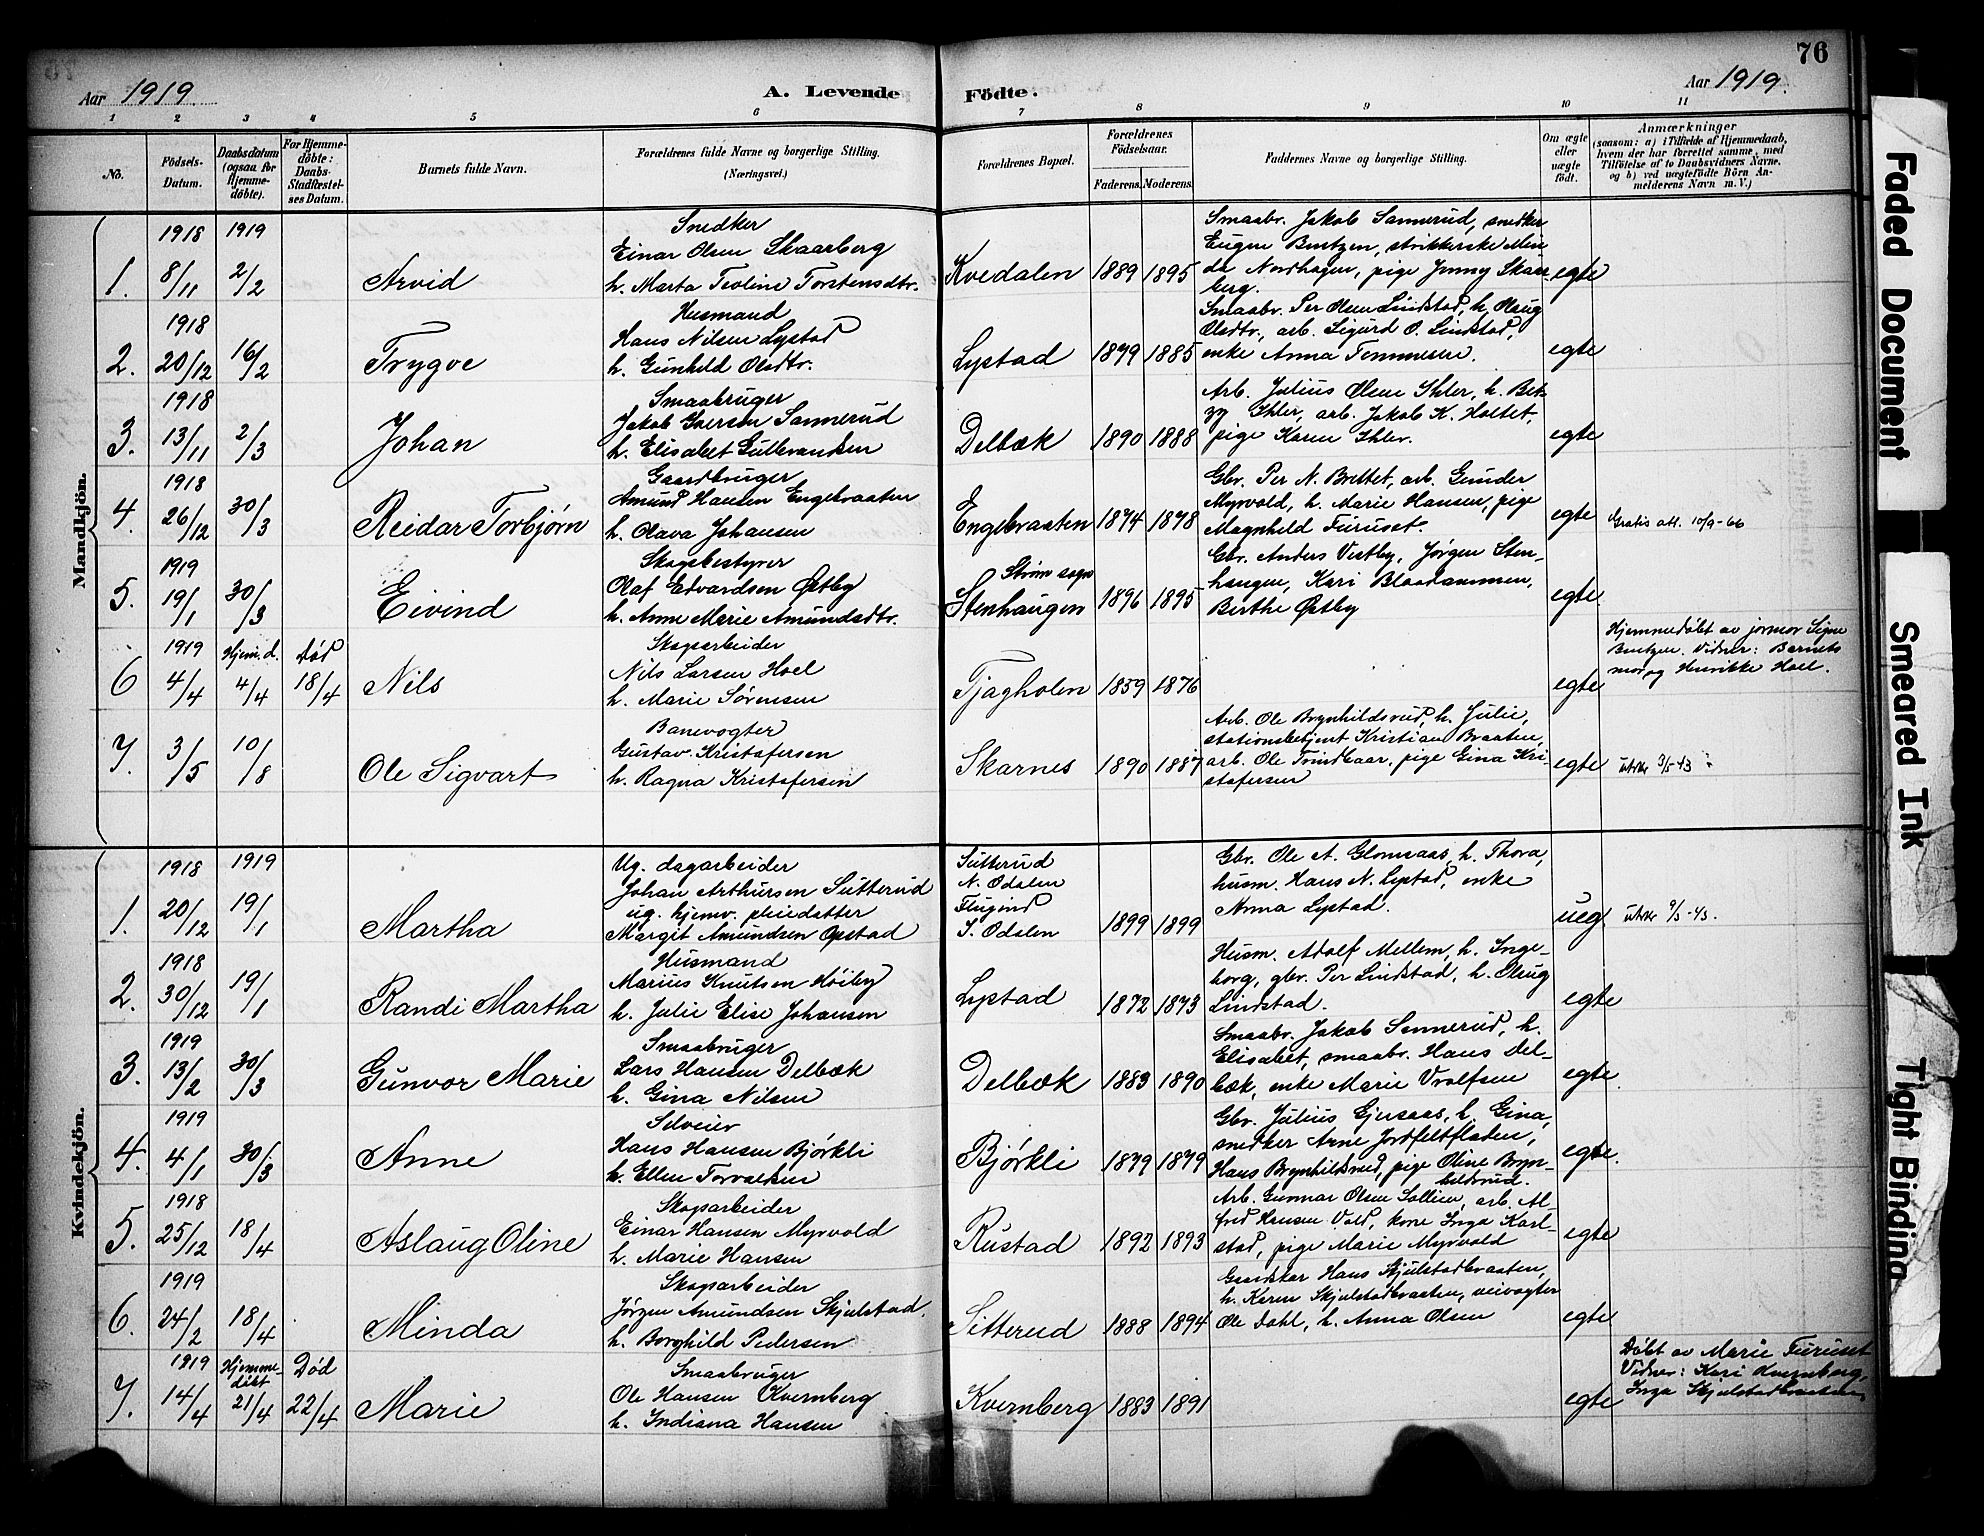 76
Aar 1919.
A. Levende Födte.
Aar 1919.
1 2 3 4 5 6 7 8 9 10 11
No.
Födsels-Datum.
Daabsdatum (ogsaa for Hjemme-döbte).
For Hjemme-döbte: Daabs-Stadfæstel-ses Datum.
Barnets fulde Navn.
Forældrenes fulde Navne og borgerlige Stilling.
(Næringsvei.)
Forældrenes Bopæl.
Forældrenes Födselsaar.
Faderens. Moderens.
Faddernes Navne og borgerlige Stilling.
Om ægte eller uægte födt.
Anmærkninger
(saasom: a) i Tilfælde af Hjemmedaab,
hvem der har forrettet samme, med
Tilföielse af to Daabsvidners Navne,
og b) ved uægtefödte Börn An-
melderens Navn m. V.)
Mandkjön.
1. 1918 8/11 1919 2/2 Arvid
Snedker
Einar Olsen Skaarberg
h. Marta Teoline Torstensdtr.
Kvedalen 1889 1895
Smaabr. Jakob Sannerud, snedker
Eugen Bentzen, strikkerske Min
da Nordhagen, pige Jenny Skar
berg.
egte
2. 1918 20/12 16/2 Trygve
Husmand
Hans Nilsen Lystad
h. Gunhild Olsdtr.
Lystad 1879 1885
Smaabr. Per Olsen Lindstad, h. Olaug
Olsdtr., arb. Sigurd O. Lindstad,
enke Anna Tommesen.
egte
3. 1918 13/11 2/3 Johan
Smaabruger
Jakob Iversen Sannerud
h. Elisabet Gulbrandsen
Delbæk 1890 1888
Arb. Julius Olsen Ihler, h. Bet-
zy Ihler, arb. Jakob K. Holtet,
pige Karen Ihler.
egte
4. 1918 26/12 30/3 Reidar Torbjørn
Gaardbruger
Amund Hansen Engebraaten
h. Olava Johansen
Engebraaten 1874 1878
Gbr. Per N. Brettet, arb. Gunder
Myrvold, h. Marie Hansen, pige
Magnhild Furuset.
egte
Gratis att. 10/9-66
5. 1919 19/1 30/3 Eivind
Skogsbestyrer
Olaf Edvardsen Østby
h. Anne Marie Amundsdtr.
Strøm sogn
Stenhaugen 1896 1895
Gbr. Anders Vestby, Jørgen Sten-
haugen, Kari Blaadammen,
Birthe Østby
egte.
6 1919 4/4 Hjem.d. 4/4 Død 18/4 Nils
Skogarbeider
Nils Larsen Hoel
h. Marie Sørensen
Tjagholen 1859 1876
egte
Hjemmedøbt av jormor Signe
Bentzen. Vidner: Barnets
mor og Henrikke Hoel.
7. 3/5 10/8 Ole Sigvart
Banevogter
Gustav Kristofersen
h. Ragna Kristofersen
Skarnes 1890 1887
Arb. Ole Brynhildsrud, h. Julie,
stationsbetjent Kristian Braaten,
arb. Ole Trindbaar, pige Gina Kri-
stofersen
egte
utskr 3/5 43
Kvindekjön.
1. 1918 20/12 1919 19/1 Martha
Ug. dagarbeider
Johan Arthursen Sutterud
ug. hjemv. pleiedatter
Margit Amundsen Opstad
Sutterud
N. Odalen
Flugind
S. Odalen 1899 1899
Gbr. Ole A. Glomsaas, h. Thora,
husm. Hans N. Lystad, enke
Anna Lystad.
ueg.
utskr 9/3-43.
2. 1918 30/12 19/1 Randi Martha
Husmand
Marius Knutsen Høiby
h. Julie Elise Johansen
Lystad 1872 1873
Husm. Adolf Mellem, h. Inge-
borg, gbr. Per Lindstad, h. Olaug
Lindstad.
egte
3. 1919 13/2 30/3 Gunvor Marie
Smaabruger
Lars Hansen Delbæk
h. Gina Nilsen
Delbæk 1883 1890
Smaabr. Jakob Sannerud, h.
Elisabet, smaabr. Hans Del-
bæk, enke Marie Vralfsen
egte.
4. 1919 4/1 30/3 Anne
Selveier
Hans Hansen Bjørkli
h. Ellen Torvaldsen
Bjørkli 1879 1879
Gbr. Julius Gjersaas, h. Gina,
snedker Arne Jordfeltfladen,
Hans Brynhildsrud, pige Oline Bryn-
hildsrud.
egte.
5. 1918 25/12 18/4 Aslaug Oline
Skogarbeider
Einar Hansen Myrvold
h. Marie Hansen
Rustad 1892 1893
Arb. Gunnar Olsen Sollien, arb. Al-
fred Hansen Vold, kone Inga Karl-
stad, pige Marie Myrvold
egte
6. 1919 24/2 18/4 Minda
Skogarbeider
Jørgen Amundsen Skjulstad.
h. Borghild Pedersen
Sitterud 1888 1894
Gaardskar Hans Skjulstadbraaten,
h. Karen Skjulstadbraaten, veivogter
Ole Dahl, h. Anna Olsen
egte
7. 1919 14/4 Hjemme-døbt 21/4 Død 22/4 Marie
Smaabruger
Ole Hansen Kvernberg
h. Indiana Hansen
Kvernberg 1883 1891
egte
Døbt av Marie Furuset
Vidner: Kari Kvernberg,
Inga Skjulstadbraaten
Faded Document
Smeared Ink
Tight Binding